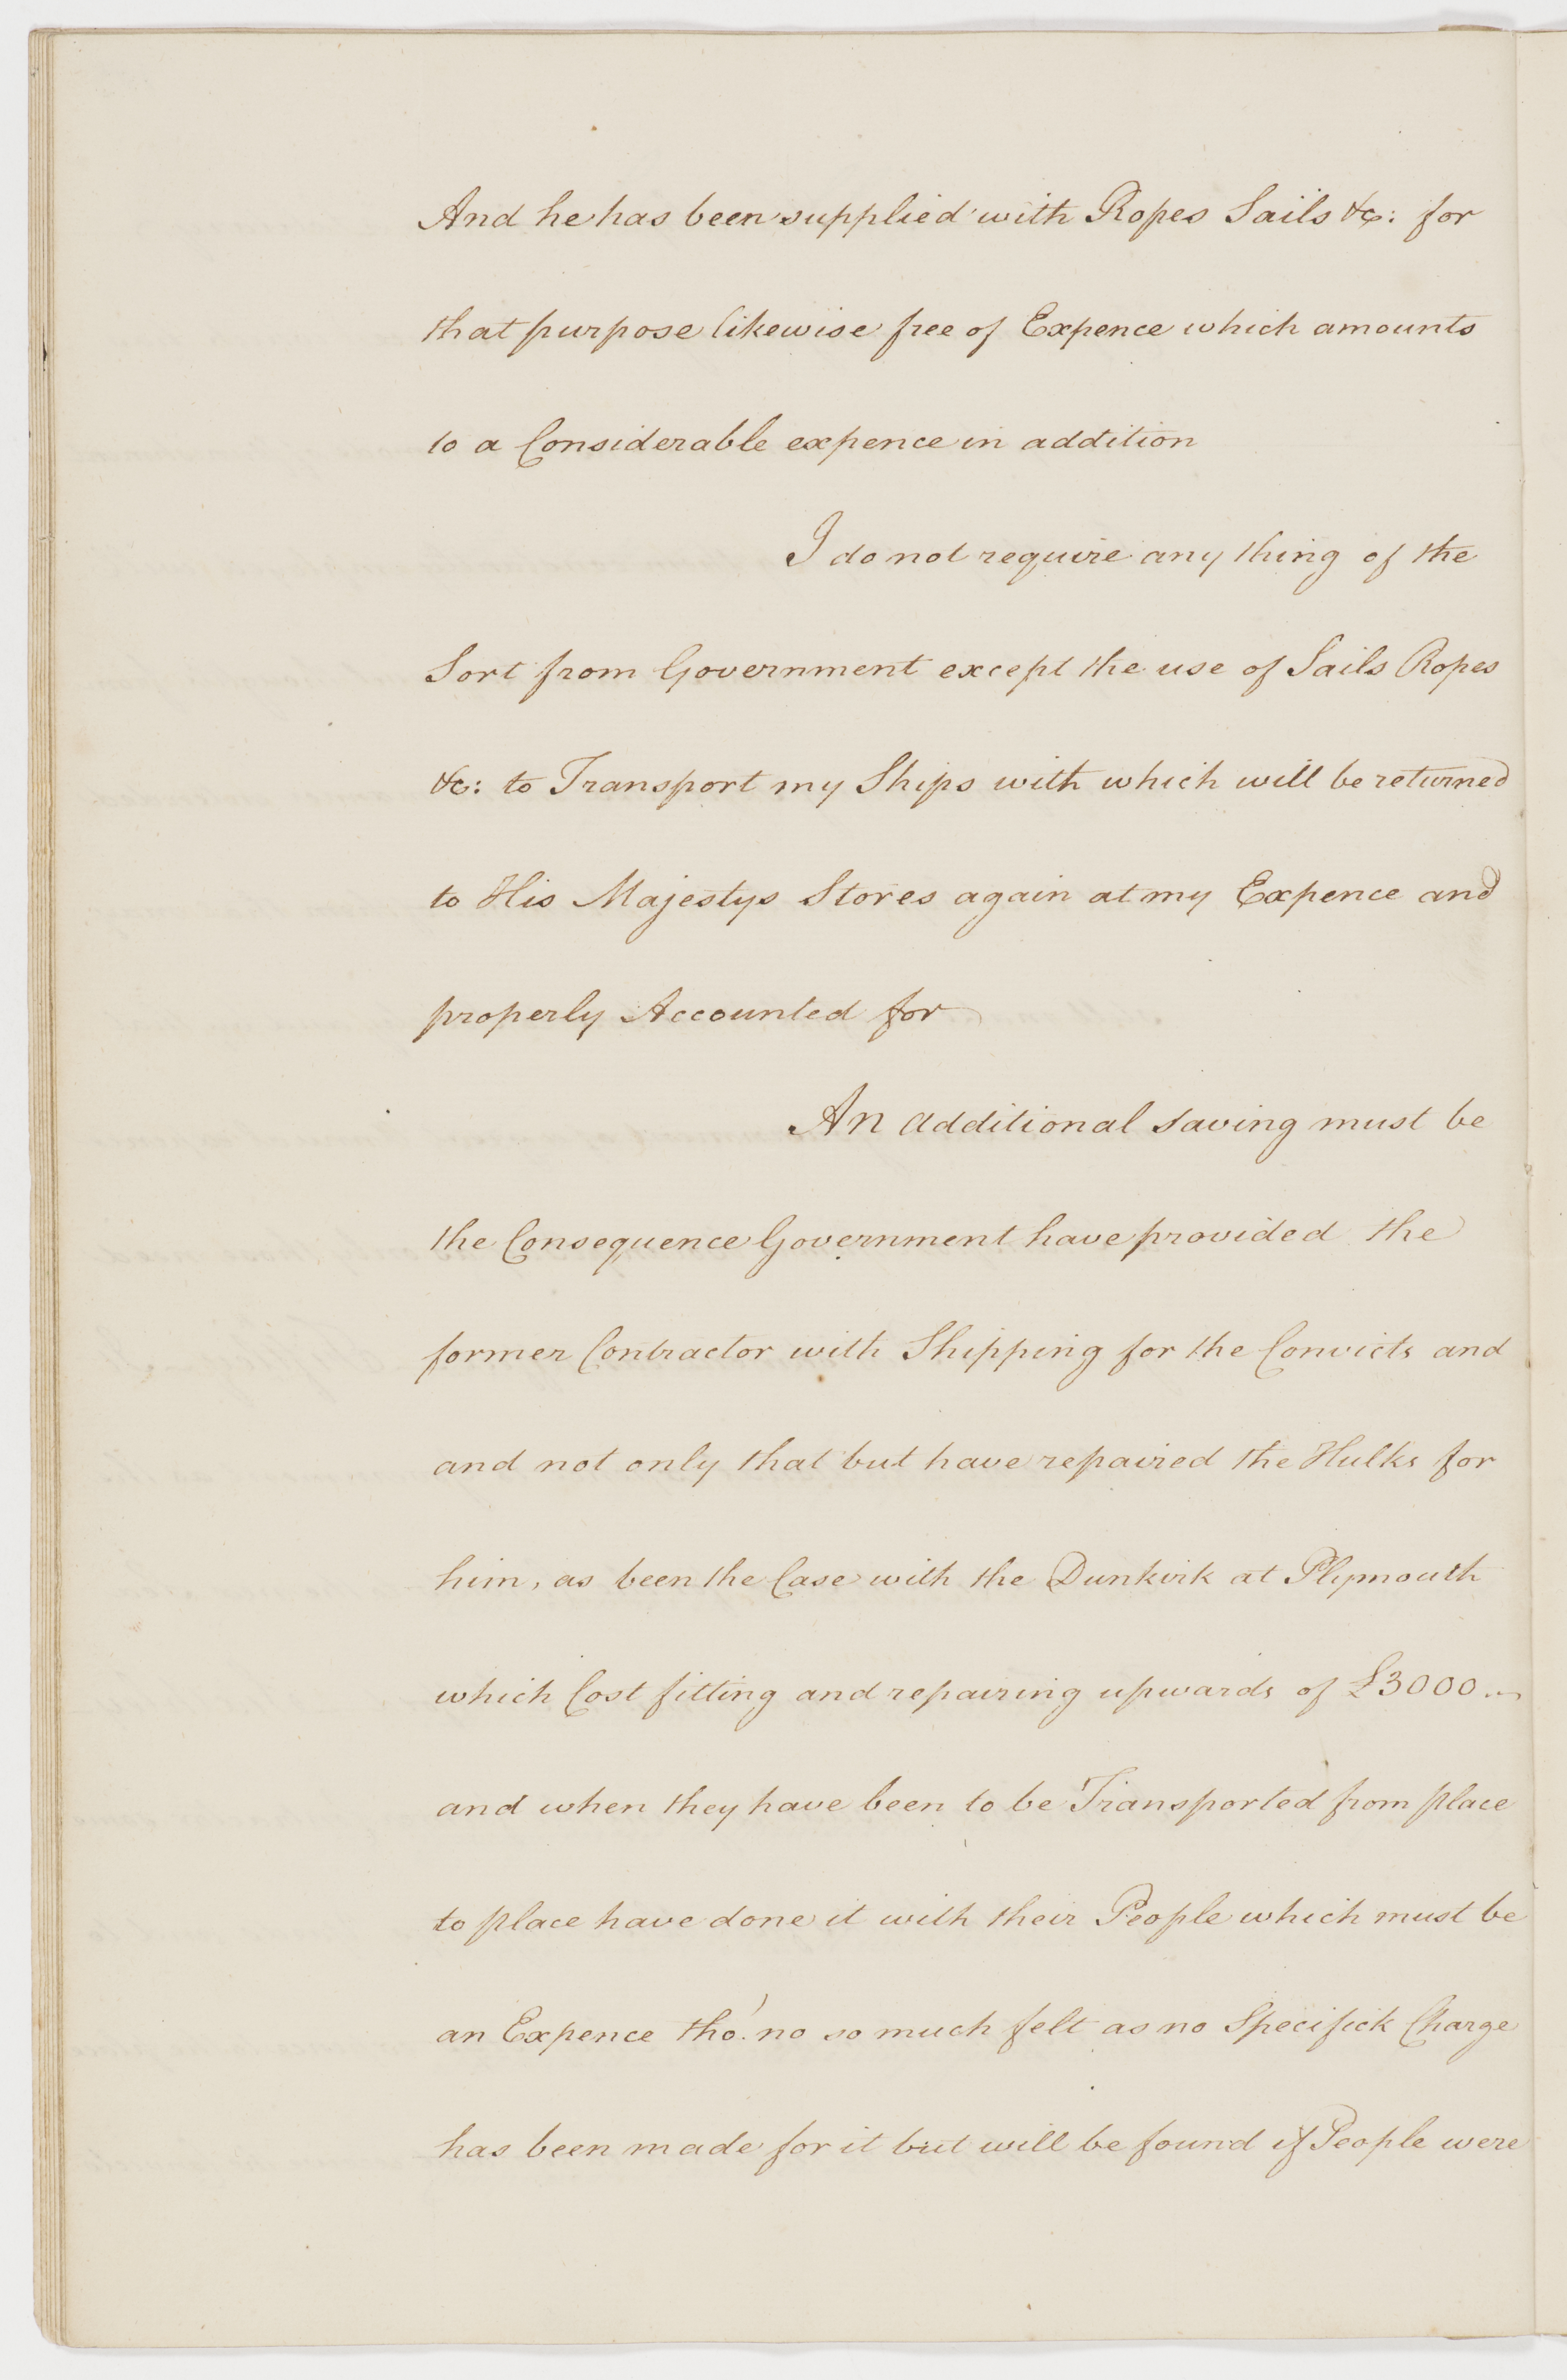 And he has been supplied with Ropes Sails &c: for
that purpose likewise free of Expence which amounts
to a Considerable expence in addition
I do not require any thing of the
Sort from Government except the use of Sails Ropes
&c: to Transport my Ships with which will be returned
to His Majestys Stores again at my Expence and
properly Accounted for
An additional saving must be
the Consequence Government have provided the
former Contractor with Shipping for the Convicts and
and not only that but have repaired the Hulks for
him, as been the Case with the Dunkirk at Plymouth
which Cost fitting and repairing upwards of £3000..
and when they have been to be Transported from place
to place have done it with their People which must be
an Expence tho' no so much felt as no Specifick Charge
has been made for it but will be found if People were